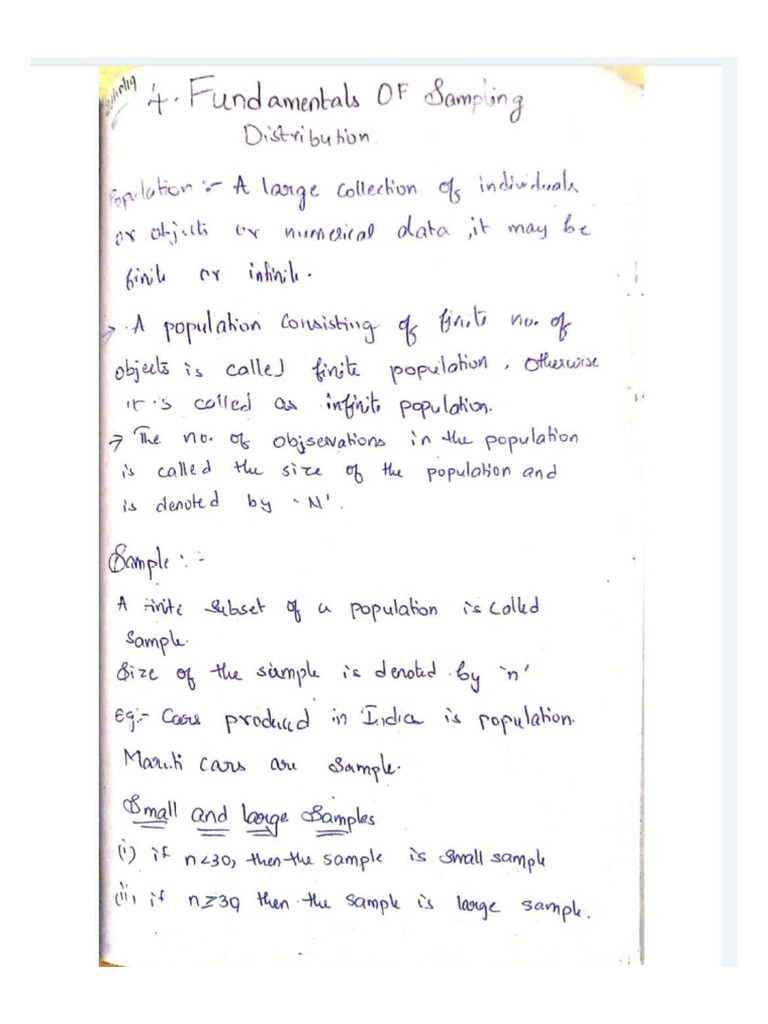 4. Fundamentals OF Sampling
Distribution
Population :- A large collection of individuals
or objects or numerical data, it may be
finite or infinite.
→ A population consisting of finite no. of
objects is called finite population. Otherwise
it is called as infinite population.
→ The no. of objservations in the population
is called the size of the population and
is denoted by 'N'.
Sample :-
A finite subset of a population is called
Sample.
Size of the sample is denoted by 'n'
Eg:- Cars produced in India is population.
Maruti cars are sample.
Small and large Samples
(i) if n<30, then the sample is small sample
(ii) if n≥30 then the sample is large sample.